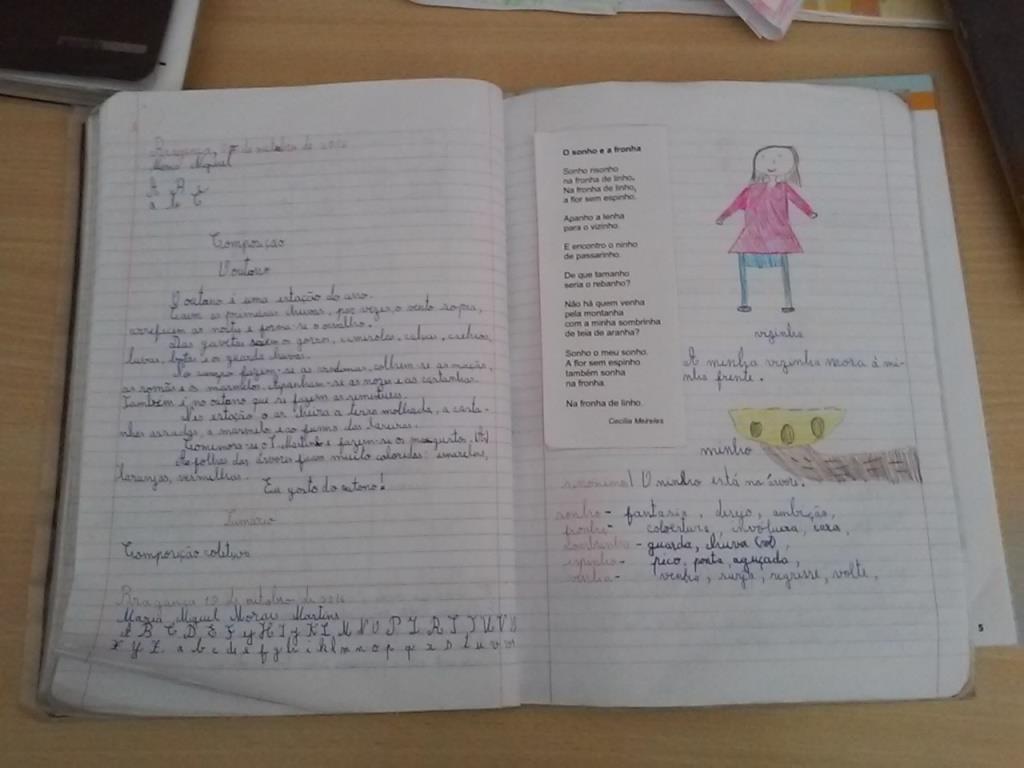 Bragança, de outubro de 2016
Maria Miguel
A
a
Composição
O outono
O outono é uma estação do ano.
Caem as primeiras chuvas, por vezes, o vento sopra,
arrefecem as noites e forma-se o orvalho.
Das gavetas saem o gorro, camisolas, calças, cachecol,
luvas, botas e o guarda chuva.
No campo fazem-se as vindimas, colhem-se as maçãs,
as romãs e os marmelos. Apanham-se as nozes e as castanhas.
Também é no outono que se fazem as sementeiras.
Nesta estação, o ar cheira a terra molhada, a casta-
nhas assadas, a marmelo e ao fumo das lareiras.
Comemora-se o S. Martinho e fazem-se os magustos.
As folhas das árvores ficam muito coloridas: amarelas,
laranjas, vermelhas.
Eu gosto do outono!
Sumário
Composição coletiva
Bragança 19 de outubro de 2016
Maria Miguel Morais Martins
A B C D E F G H I J K L M N O P Q R S T U V
X Y Z a b c d e f g h i k l m n o p q r s t u v
O sonho e a fronha
Sonho risonho
na fronha de linho.
Na fronha de linho,
a flor sem espinho.
Apanho a lenha
para o vizinho.
E encontro o ninho
de passarinho.
De que tamanho
seria o rebanho?
Não há quem venha
pela montanha
com a minha sombrinha
de teia de aranha?
Sonho o meu sonho.
A flor sem espinho
também sonha
na fronha.
Na fronha de linho.
Cecília Meireles
vizinha
A minha vizinha mora à mi-
nha frente.
ninho
sinónimo! O ninho está na árvore.
sonho - fantasia, desejo, ambição,
fronha - cobertura, invólucro, capa,
sombrinha - guarda, chuva (sol),
espinho - pico, ponta aguçada,
venha, surja, regresse, volte,
5